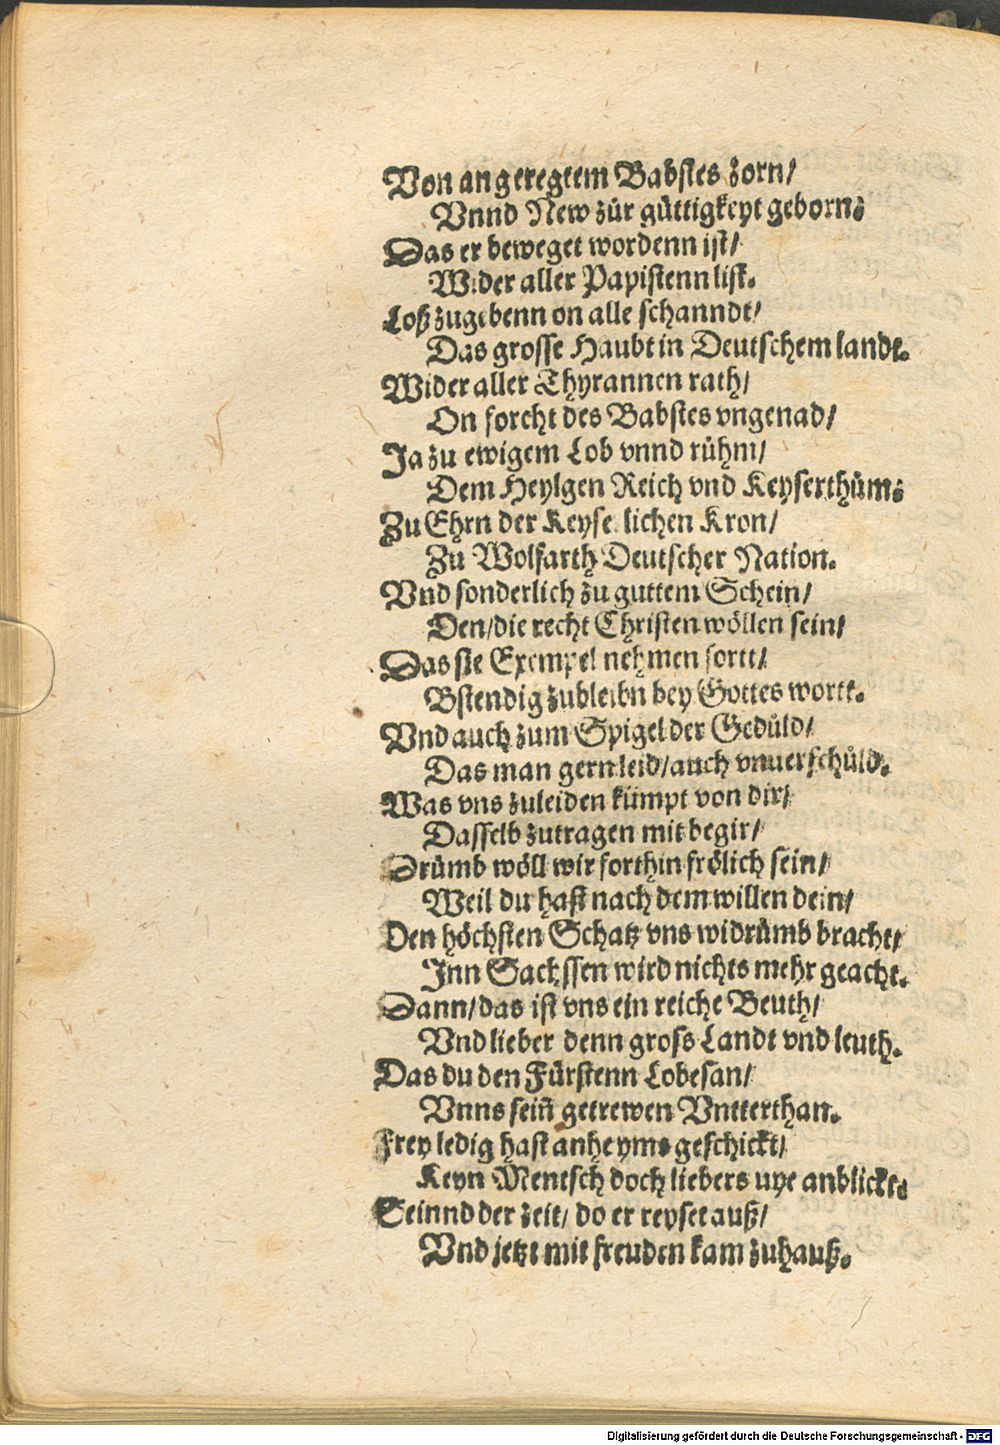 Von angeregtem Babstes zorn/
Vnnd New zůr gůttigkeyt geborn:
Das er beweget wordenn ist/
Wider aller Papistenn list.
Loß zugebenn on alle schanndt/
Das grosse Haubt in Deutschem landt.
Wider aller Thyrannen rath/
On forcht des Babstes vngenad/
Ja zu ewigem Lob vnnd rühm/
Dem Heylgen Reich vnd Keyserthům:
Zu Ehrn der Keyserlichen Kron/
Zu Wolfarth Deutscher Nation.
Vnd sonderlich zu guttem Schein/
Den/die recht Christen wöllen sein/
Das sie Exempel nehmen fortt/
Bstendig zubleibn bey Gottes wortt.
Vnd auch zum Spigel der Gedůld/
Das man gern leid/auch vnuerschůld.
Was vns zuleiden kůmpt von dir/
Dasselb zutragen mit begir/
Drümb wöll wir forthin frölich sein/
Weil du hast nach dem willen dein/
Den höchsten Schatz vns widrümb bracht/
Inn Sachssen wird nichts mehr geacht.
Dann/das ist vns ein reiche Beuth/
Vnd lieber denn gross Landt vnd leuth.
Das du den Fürstenn Lobesan/
Vnns sein̄ getrewen Vntterthan.
Frey ledig hast anheyms geschickt/
Keyn Mentsch doch liebers nye anblickt.
Seinnd der zeit/ do er reyset auß/
Vnd jetzt mit freuden kam zuhauß.
Digitalisierung gefördert durch die Deutsche Forschungsgemeinschaft - DFG